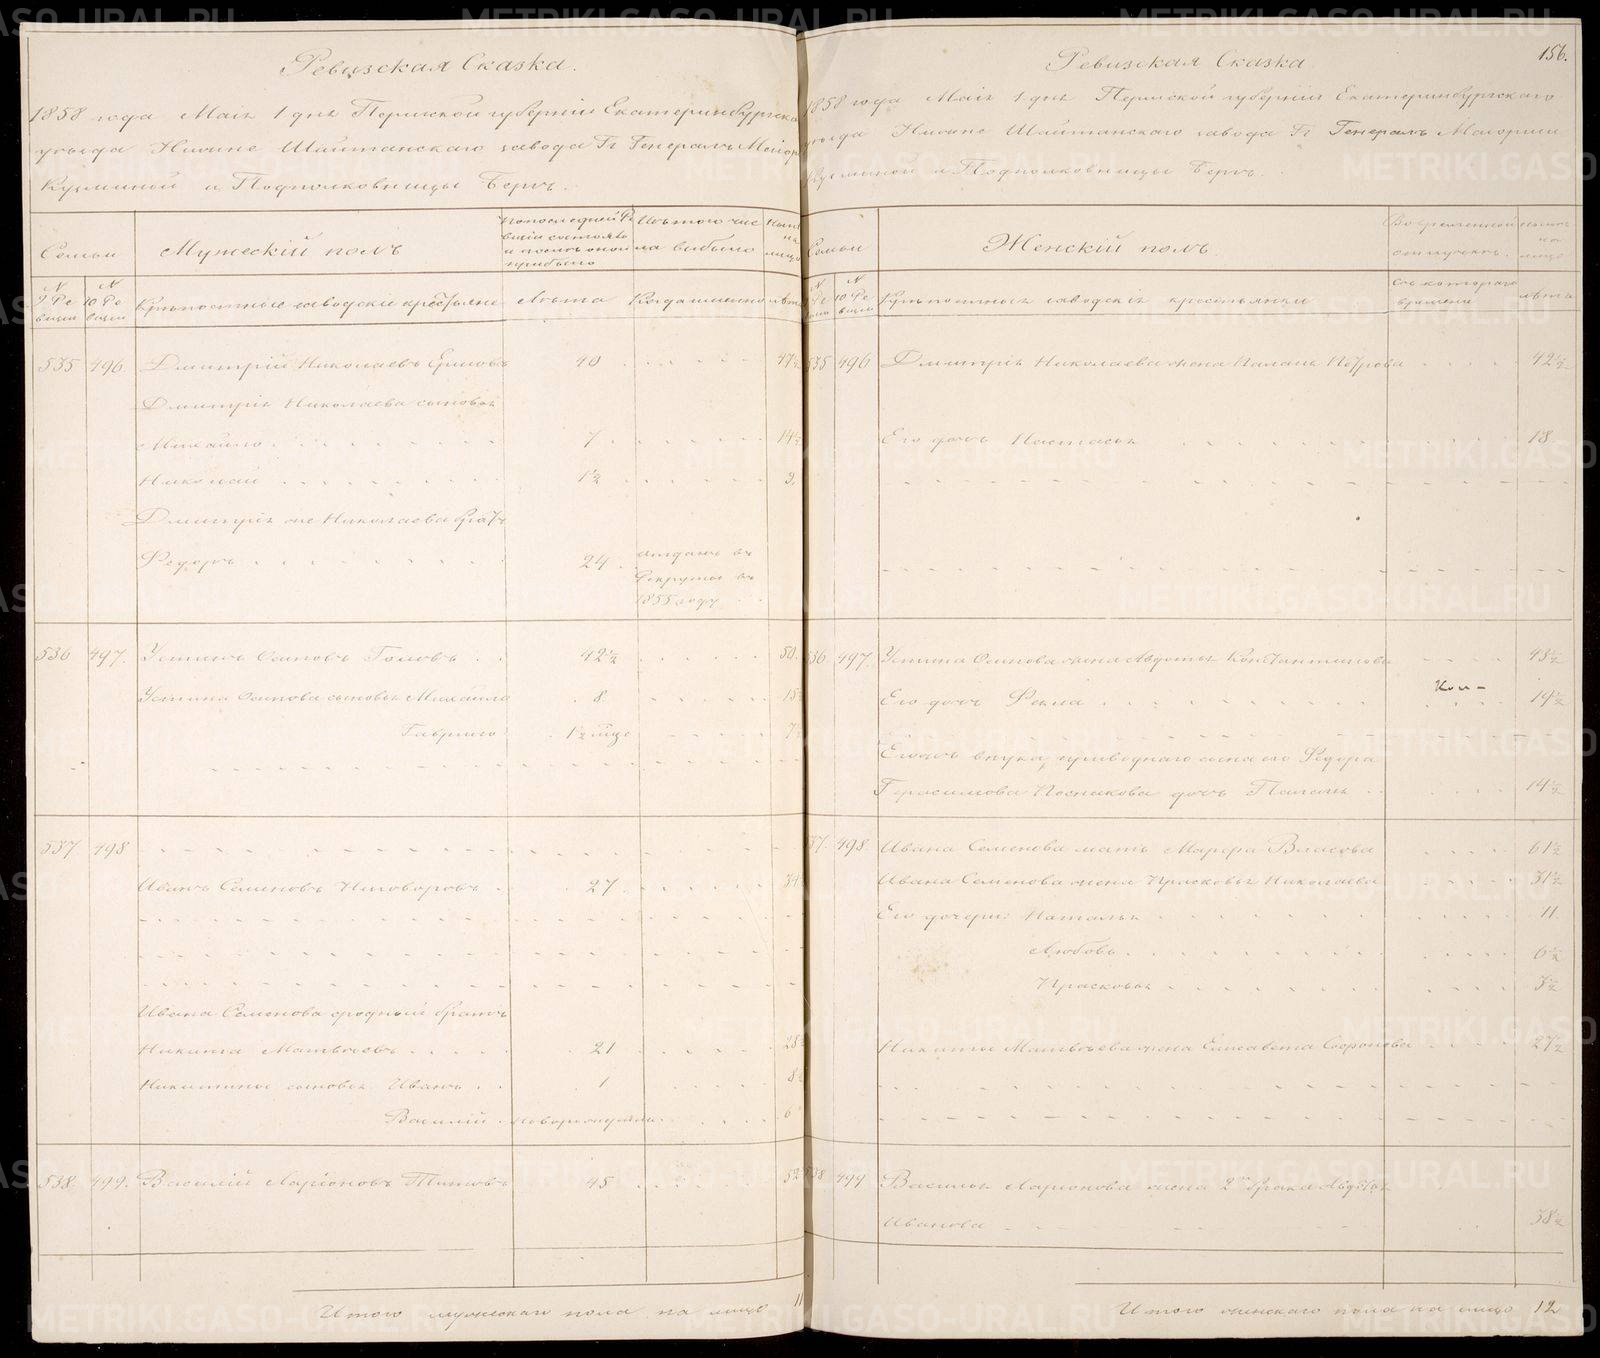 Ревизская Сказка.
1858 года Маія 1 дня Пермской губерніи Екатеринбургска
уѣзда Нижне Шайтанскаго завода Гг Генералъ Маіор
Кузминой и Подполковницы Бергъ.
Семьи
Мужескій полъ
По последней Ре
визіи состояло
и послѣ оной
прибыло
Изъ того чис
ла выбыло
Ныне
на
лицо
N
9 Ре
визіи
N
10 Ре
визіи
Крѣпостные заводскіе крестьяне
Лѣта
Когда именно
лѣта
535 496. Дмитрій Николаевъ 40 47½
Дмитрія Николаева сыновья
Михайло 7 14½
Николай 1½ 9.
Дмитрія же Николаева братъ
Федоръ 24 отданъ въ
рекруты въ
1855 году
536 497. Устинъ Осиповъ 42½ 50.
Устина Осипова сыновья Михайла 8 15½
Гаврило 1½ 7½
537 498
Иванъ Семеновъ 27 34½
Ивана Семенова сродный братъ
Никита Матвѣевъ 21 28½
Никитины сыновья Иванъ 1 8½
Василій новорожденъ 6
538 499. Василій Ларіоновъ Титовъ 45 52½
Итого мужескаго пола на лицо 11
156.
Ревизская Сказка
1858 года Маія 1 дня Пермской губерніи Екатеринбургскаго
уѣзда Нижне Шайтанскаго завода Гг Генералъ Маіорши
Кузминой и Подполковницы Бергъ.
Семьи
Женскій полъ.
Во временной
отлучкѣ.
Ныне
на
лицо
N
9 Ре
визіи
N
10 Ре
визіи
Крѣпостныя заводскія крестьянки
Съ котораго
времени
лѣта
535 496 Дмитрія Николаева жена Палагѣя Петрова 42½
Его дочь Настасья 18
536. 497. Устина Осипова жена Авдотья Константинова 43½
Его дочь Фекла 19½
Герасимова дочь 14½
537. 498. Ивана Семенова мать Марфа Власова 61½
Ивана Семенова жена Прасковья Николаева 31½
Его дочери: Наталья 11.
Любовь 6½
Прасковья 3½
Никиты Матвѣева жена Елисавета Софронова 27½
538. 499 Василья Ларіонова жена 2го брака Авдотья
Иванова 38½
Итого женскаго пола на лицо 12
METRIKI.GASO-URAL.RU